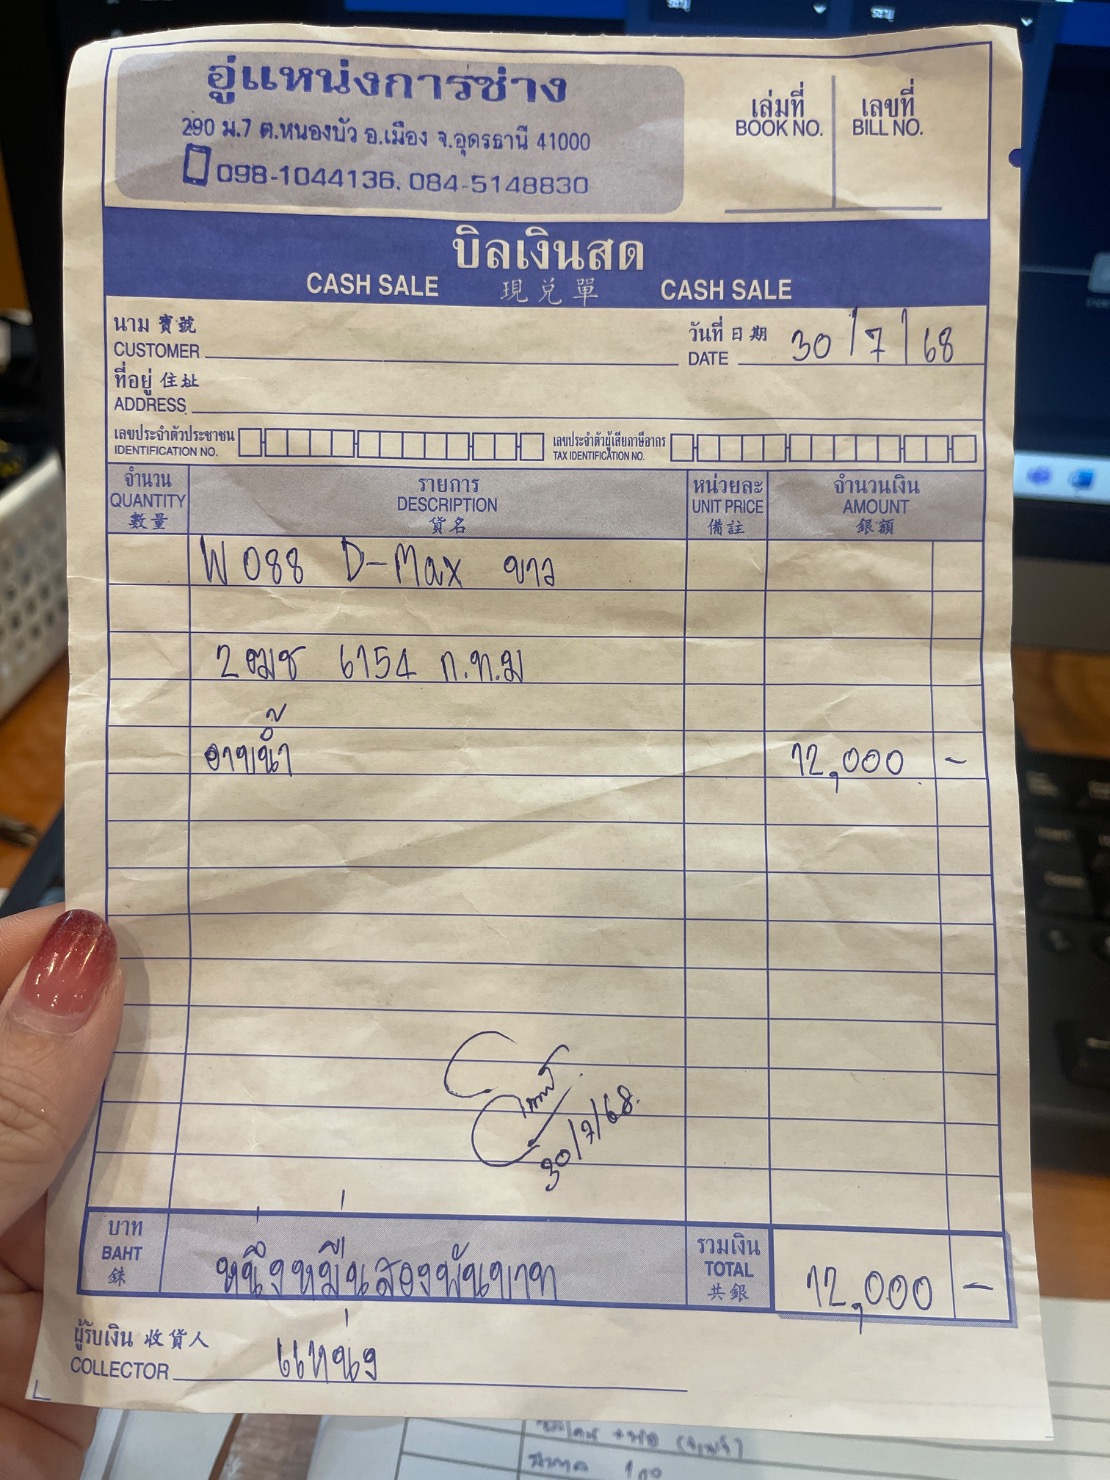 อู่แหน่งการช่าง
290 ม.7 ต.หนองบัว อ.เมือง จ.อุดรธานี 41000
098-1044136, 084-5148830
เล่มที่ เลขที่
BOOK NO. BILL NO.
บิลเงินสด
CASH SALE 現兌單 CASH SALE
นาม 寶號
CUSTOMER
วันที่ 日期
DATE 30/7/68
ที่อยู่ 住址
ADDRESS
เลขประจำตัวประชาชน
IDENTIFICATION NO.
เลขประจำตัวผู้เสียภาษีอากร
TAX IDENTIFICATION NO.
จำนวน รายการ หน่วยละ จำนวนเงิน
QUANTITY DESCRIPTION UNIT PRICE AMOUNT
數量 貨名 備註 銀額
W 088 D-Max ขาว
2ฒช 6154 ก.ท.ม
12,000 -
30/7/68
บาท
BAHT
銖
หนึ่งหมื่นสองพันบาท
รวมเงิน
TOTAL
共銀
12,000 -
ผู้รับเงิน 收貨人
COLLECTOR แหน่ง